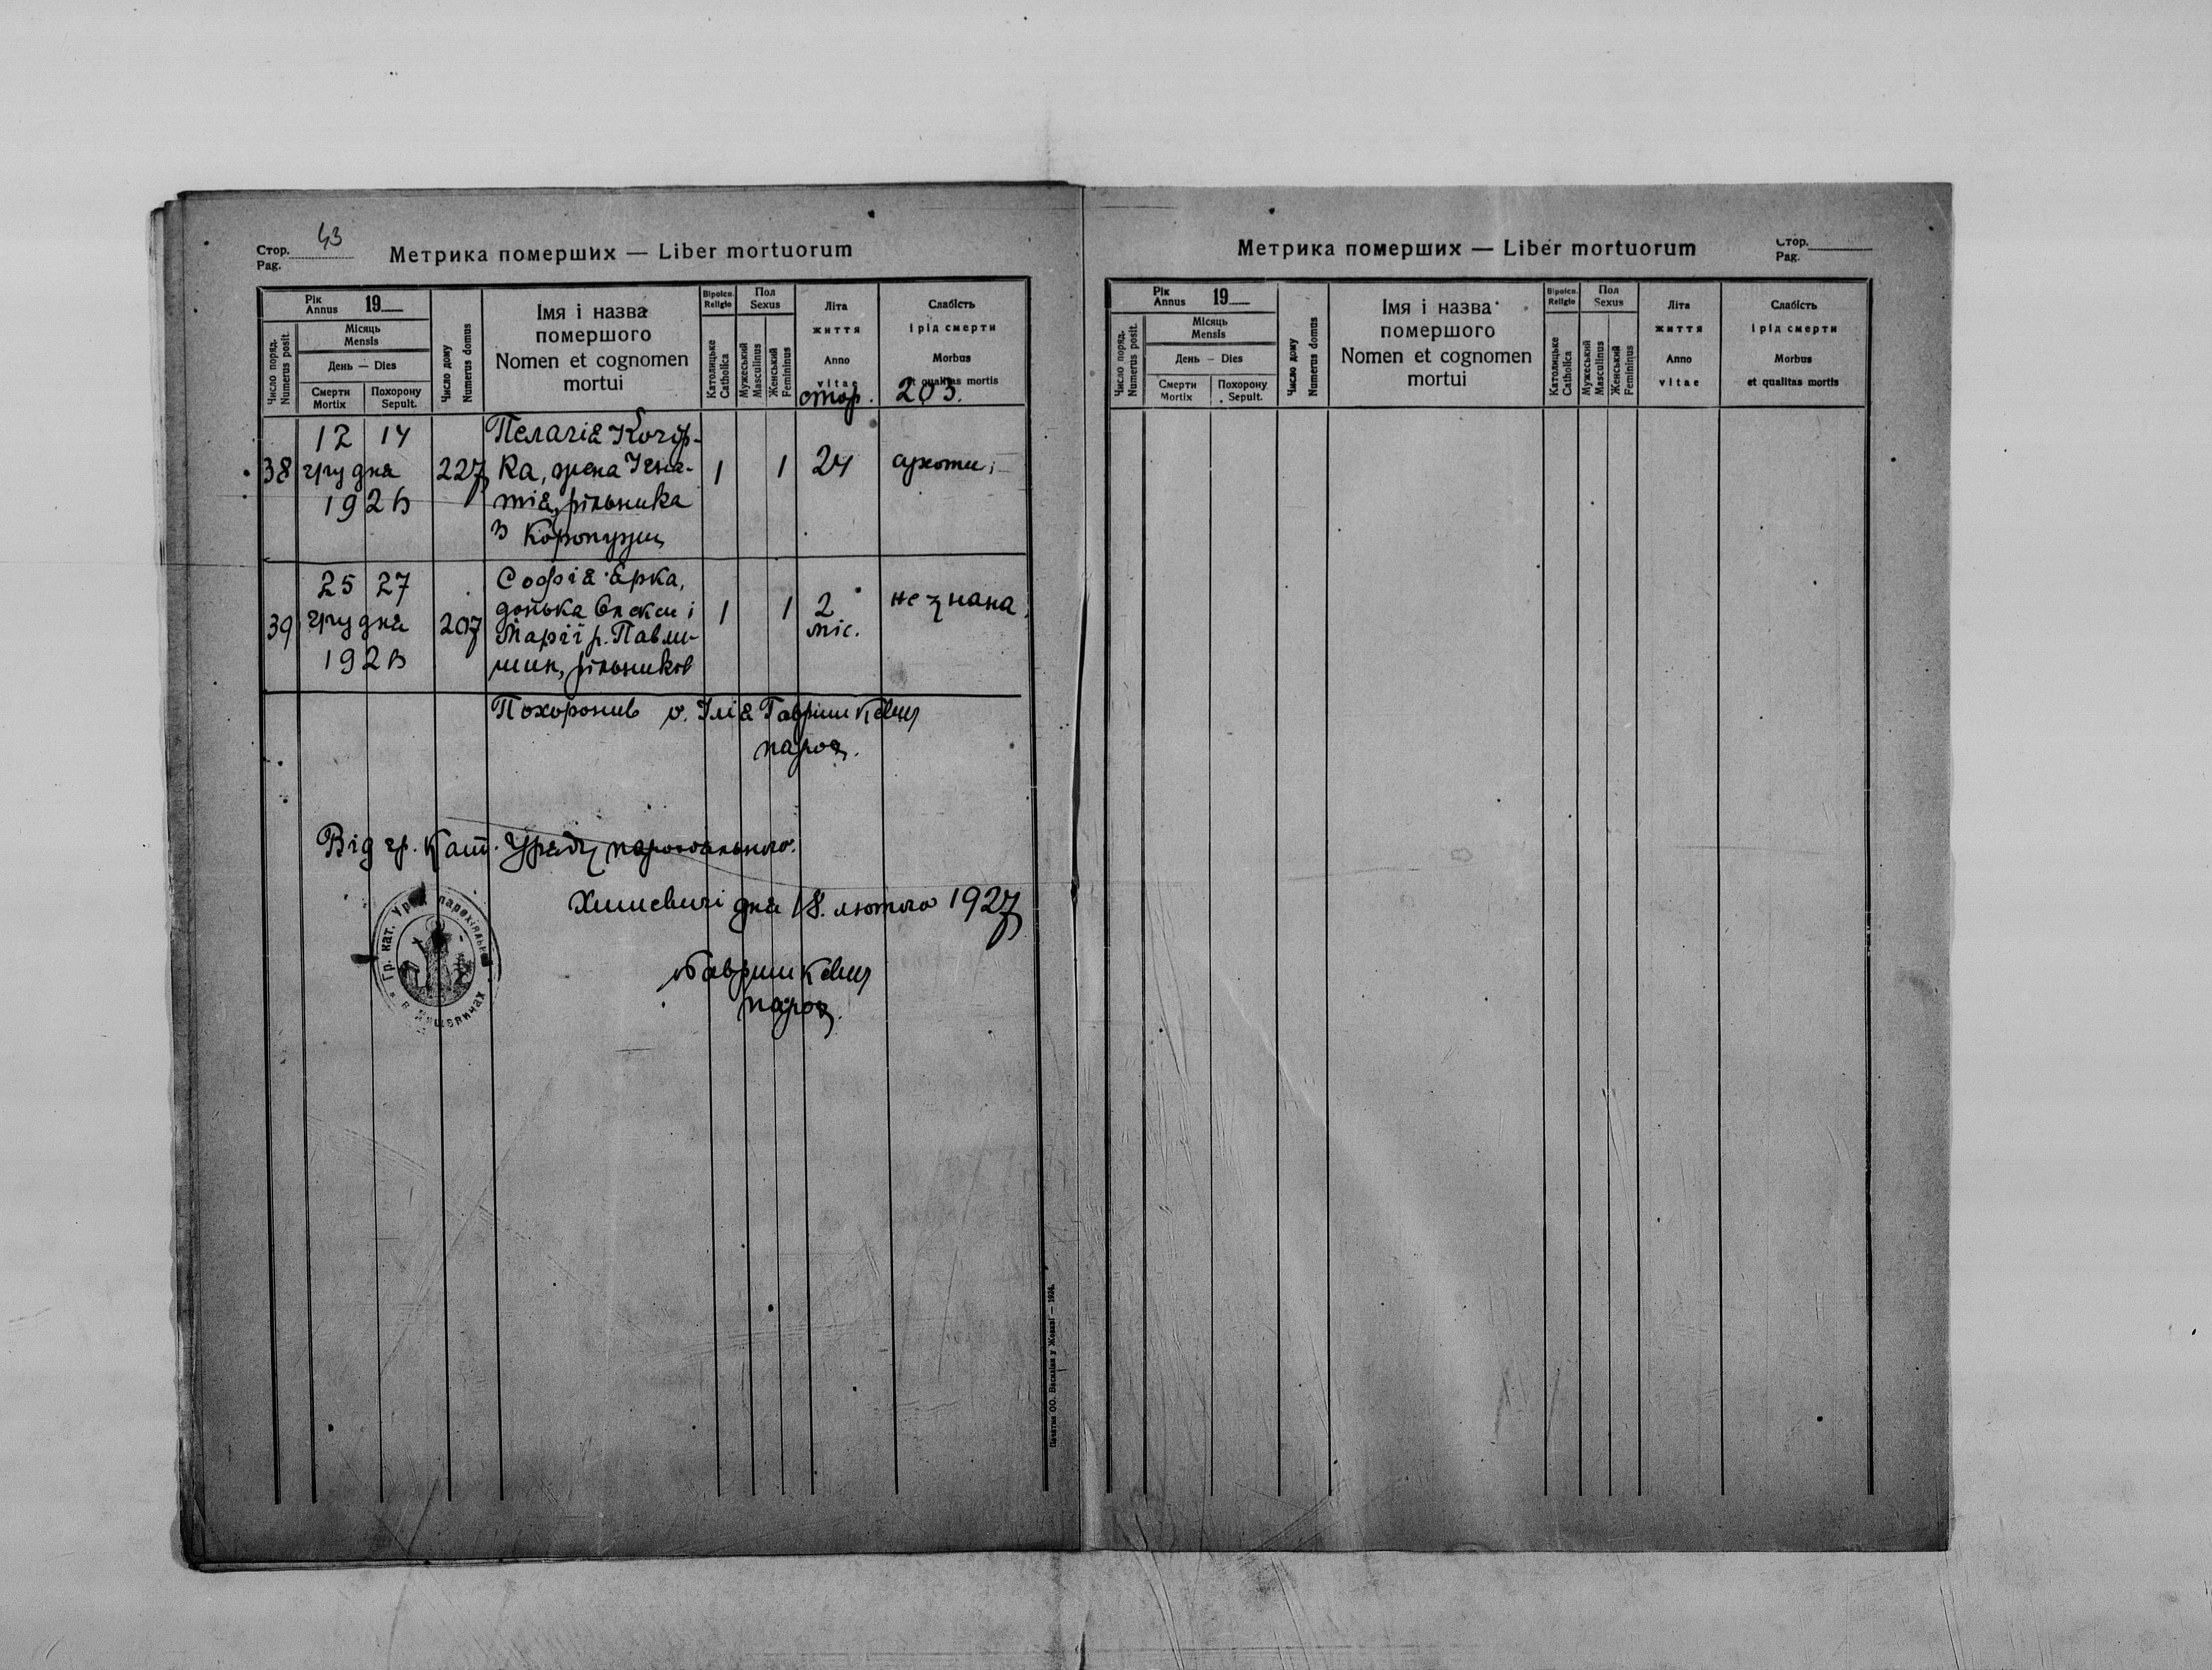 Стор. 43
Pag.
Метрика померших — Liber mortuorum
Рік
Annus 19
Місяць
Mensis
День — Dies
Смерти
Mortix
Похорону
Sepult.
Число поряд.
Numerus posit.
Число дому
Numerus domus
Імя і назва
помершого
Nomen et cognomen
mortui
Віроісп.
Religio
Католицьке
Catholica
Пол
Sexus
Мужеський
Masculinus
Женський
Femininus
Літа
життя
Anno
vitae
Слабість
і рід смерти
Morbus
et qualitas mortis
стор. 203.
38
12 14
грудня
1926
227
Пелагія
ка, женаІгна-
тія, рільника
з Коропужи
1
1
24
сухоти
39
25 27
грудня
1926
207
Софія Ярка,
донька Олекси і
Марії р. Павли-
шин, рільників
1
1
2
міс.
не знана
Похоронив о. Ілія Гавришкевич
парох.
Від гр. кат. Уряду парохіального.
Хишевичі дня 18. лютого 1927
Гавришкевич
парох.
Гр. кат. Уряд парохіяльний
в Хишевичах
Печатня ОО. Василіян у Жовкві — 1924.
Метрика померших — Liber mortuorum
Стор.
Pag.
Рік
Annus 19
Місяць
Mensis
День — Dies
Смерти
Mortix
Похорону
Sepult.
Число поряд.
Numerus posit.
Число дому
Numerus domus
Імя і назва
помершого
Nomen et cognomen
mortui
Віроісп.
Religio
Католицьке
Catholica
Пол
Sexus
Мужеський
Masculinus
Женський
Femininus
Літа
життя
Anno
vitae
Слабість
і рід смерти
Morbus
et qualitas mortis